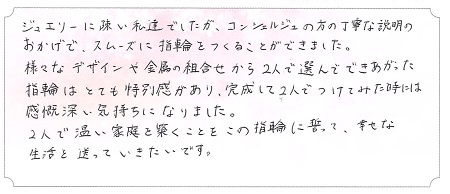 ジュエリーに疎い私達でしたが、コンシェルジュの方の丁寧な説明の
おかげで、スムーズに指輪をつくることができました。
様々なデザインや金属の組合せから2人で選んでできあがった
指輪はとても特別感があり、完成して2人でつけてみた時には
感慨深い気持ちになりました。
2人で温い家庭を築くことをこの指輪に誓って、幸せな
生活を送っていきたいです。